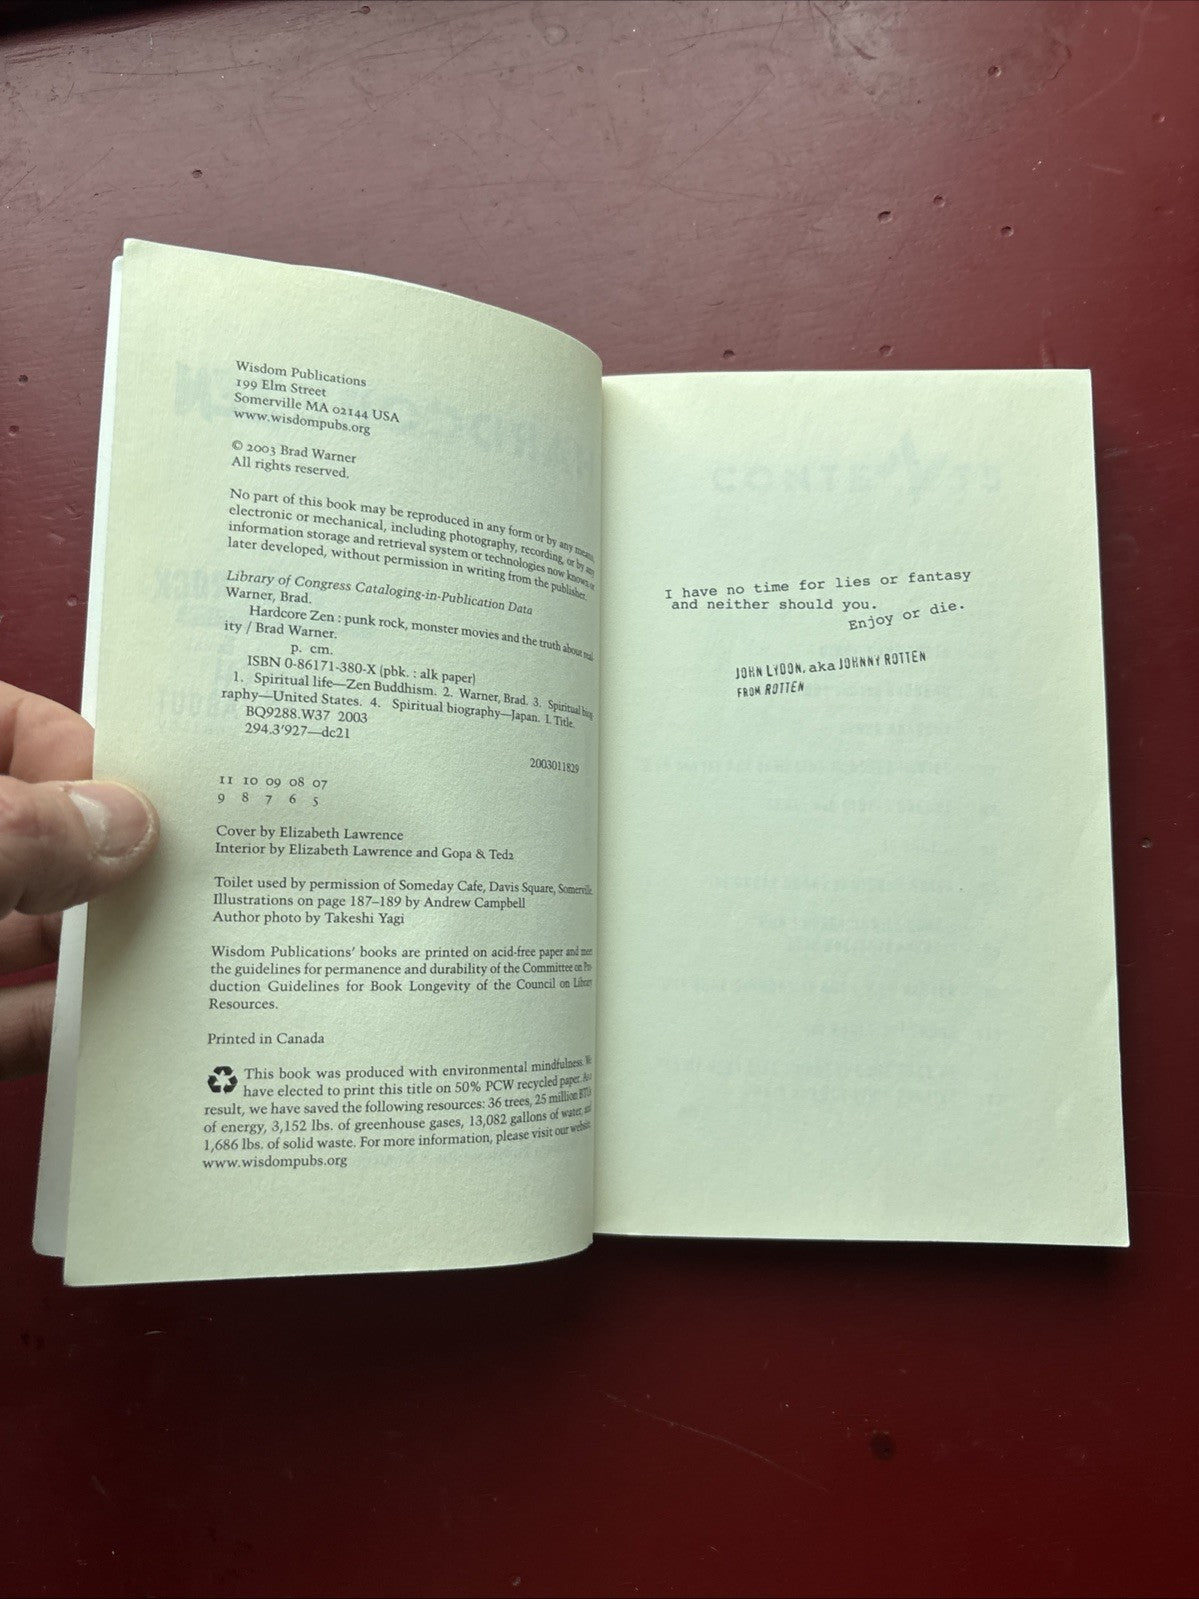 Wisdom Publications
199 Elm Street
Somerville MA 02144 USA
www.wisdompubs.org
© 2003 Brad Warner
All rights reserved.
No part of this book may be reproduced in any form or by any means,
electronic or mechanical, including photography, recording, or by any
information storage and retrieval system or technologies now known or
later developed, without permission in writing from the publisher.
Library of Congress Cataloging-in-Publication Data
Warner, Brad.
Hardcore Zen : punk rock, monster movies and the truth about real-
ity / Brad Warner.
p. cm.
ISBN 0-86171-380-X (pbk. : alk paper)
1. Spiritual life—Zen Buddhism. 2. Warner, Brad. 3. Spiritual biog
raphy—United States. 4. Spiritual biography—Japan. I. Title.
BQ9288.W37 2003
294.3'927—dc21
2003011829
11 10 09 08 07
9 8 7 6 5
Cover by Elizabeth Lawrence
Interior by Elizabeth Lawrence and Gopa & Ted2
Toilet used by permission of Someday Cafe, Davis Square, Somerville.
Illustrations on page 187–189 by Andrew Campbell
Author photo by Takeshi Yagi
Wisdom Publications' books are printed on acid-free paper and meet
the guidelines for permanence and durability of the Committee on Pro-
duction Guidelines for Book Longevity of the Council on Library
Resources.
Printed in Canada
This book was produced with environmental mindfulness. We
have elected to print this title on 50% PCW recycled paper. As a
result, we have saved the following resources: 36 trees, 25 million BTUs
of energy, 3,152 lbs. of greenhouse gases, 13,082 gallons of water, and
1,686 lbs. of solid waste. For more information, please visit our website.
www.wisdompubs.org
I have no time for lies or fantasy
and neither should you.
Enjoy or die.
JOHN LYDON, aka JOHNNY ROTTEN
FROM ROTTEN